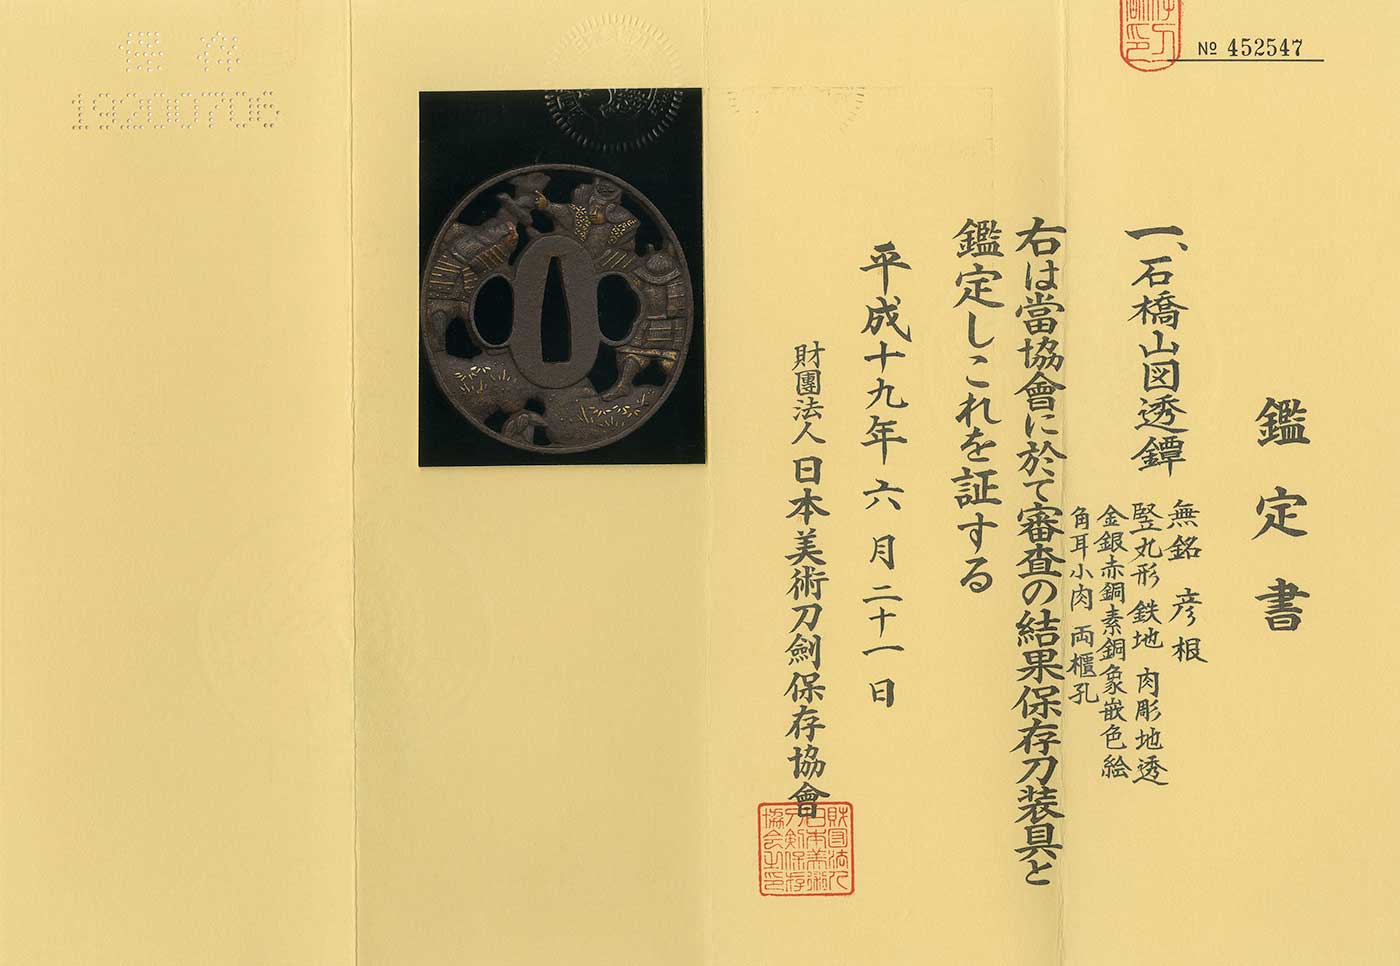 No 452547
鑑定書
一、石橋山図透鐔
無銘 彦根
竪丸形 鉄地 肉彫地透
金銀赤銅素銅象嵌色絵
角耳小肉 両櫃孔
右は當協會に於て審査の結果保存刀装具と
鑑定しこれを証する
平成十九年六月二十一日
財團法人日本美術刀劍保存協會
財団法人
日本美術
刀剣保存
協会之印
保存
19200706